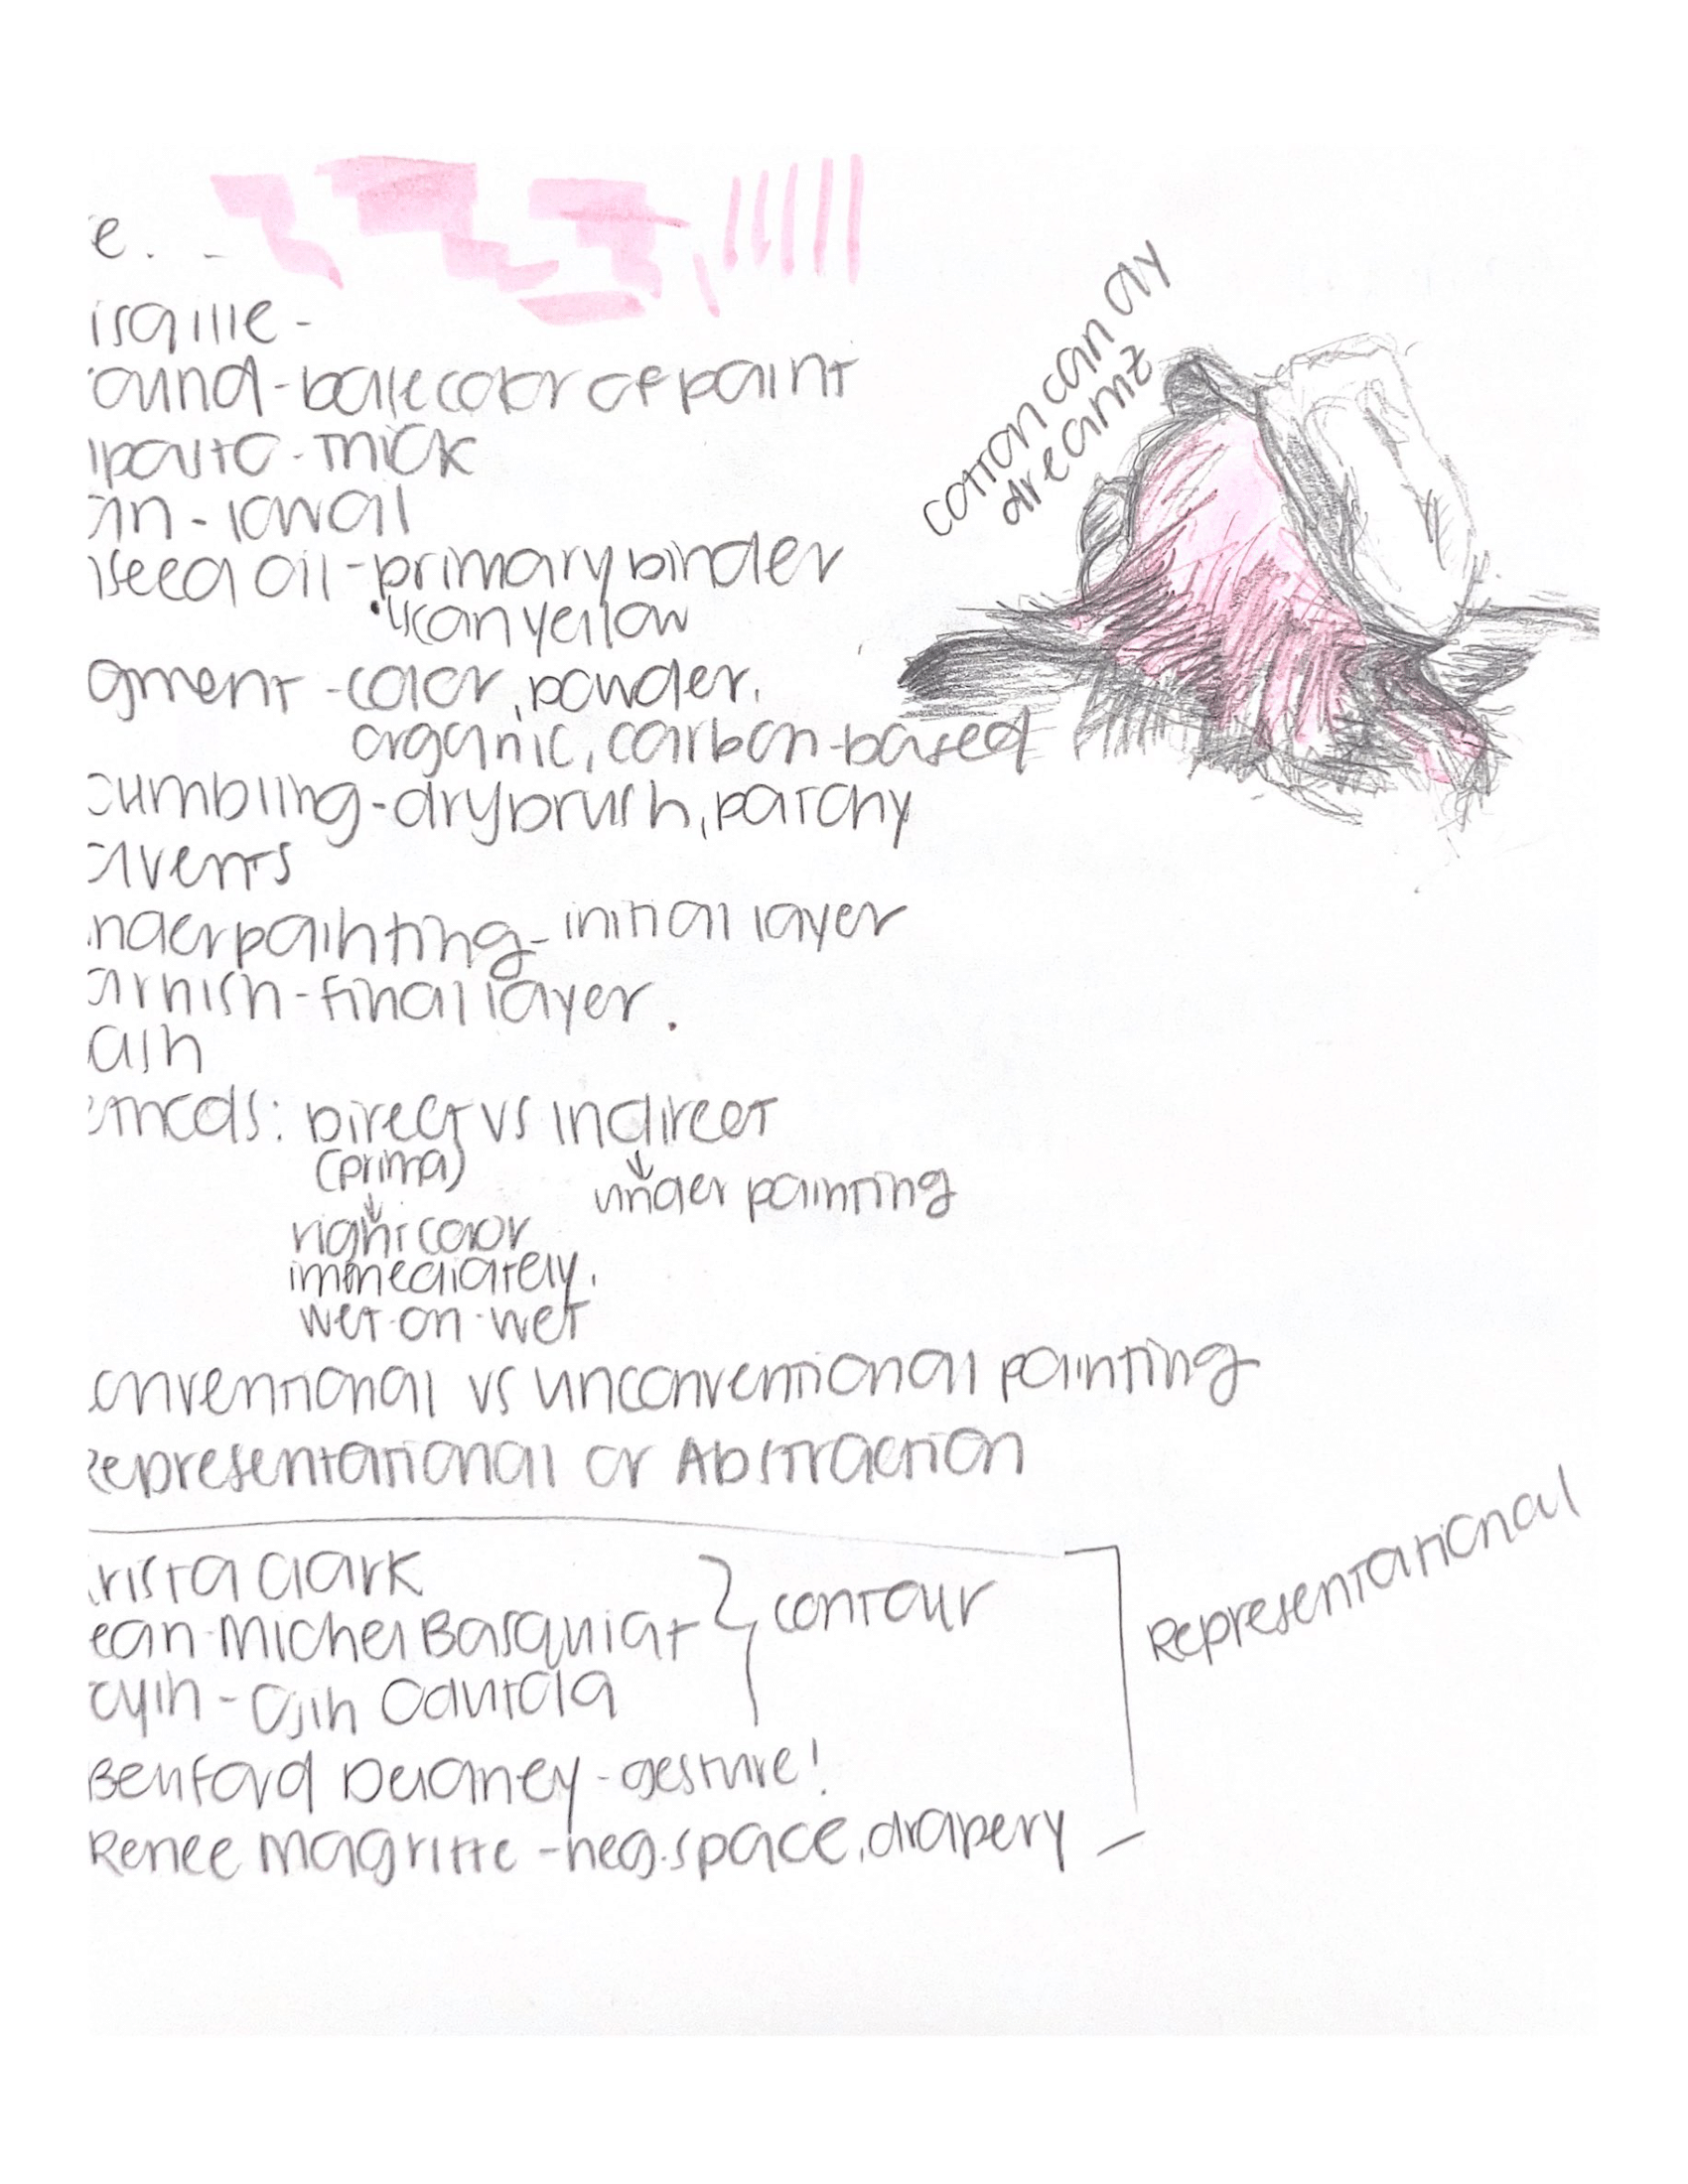 e. -
isaille -
ound - base color of paint
ipasto - thick
an - low oil
nseed oil - primary binder
• ↳ can yellow
gment - color, powder.
organic, carbon-based
cumbling - dry brush, patchy
olvents
nderpainting - initial layer
arnish - final layer.
ash
ethods: Direct vs Indirect
(prima)
under painting
right color
immediately.
wet-on-wet
conventional vs unconventional painting
Representational or Abstraction
rista Clark
ean-Michel Basquiat
contour
oyin - Ojih Odutola
Beuford Delaney - gesture!
Renee Magritte - neg. space, drapery
Representational
cotton candy
dreamz